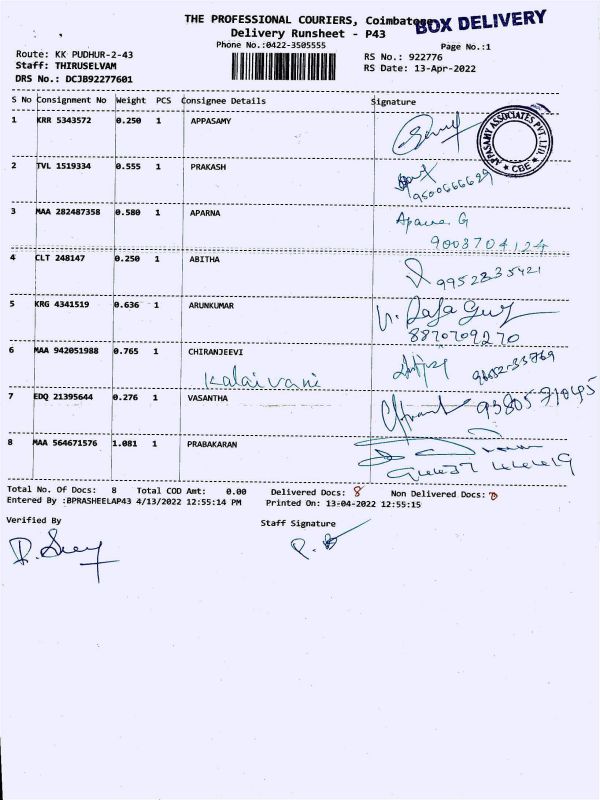 THE PROFESSIONAL COURIERS, Coimbatore
BOX DELIVERY
Delivery Runsheet - P43
Phone No.:0422-3505555
Page No.:1
Route: KK PUDHUR-2-43
RS No.: 922776
Staff: THIRUSELVAM
RS Date: 13-Apr-2022
DRS No.: DCJB92277601
S No Consignment No Weight PCS Consignee Details Signature
1 KRR 5343572 0.250 1 APPASAMY
APPASAMY ASSOCIATES PVT. LTD. CBE
2 TVL 1519334 0.555 1 PRAKASH
9500666629
3 MAA 282487358 0.580 1 APARNA
Aparna G
9003704124
4 CLT 248147 0.250 1 ABITHA
9952835421
5 KRG 4341519 0.636 1 ARUNKUMAR
8870709270
6 MAA 942051988 0.765 1 CHIRANJEEVI
Kalaivani
7 EDQ 21395644 0.276 1 VASANTHA
8 MAA 564671576 1.081 1 PRABAKARAN
Total No. Of Docs: 8 Total COD Amt: 0.00 Delivered Docs: 8 Non Delivered Docs: 0
Entered By :BPRASHEELAP43 4/13/2022 12:55:14 PM Printed On: 13-04-2022 12:55:15
Verified By
Staff Signature